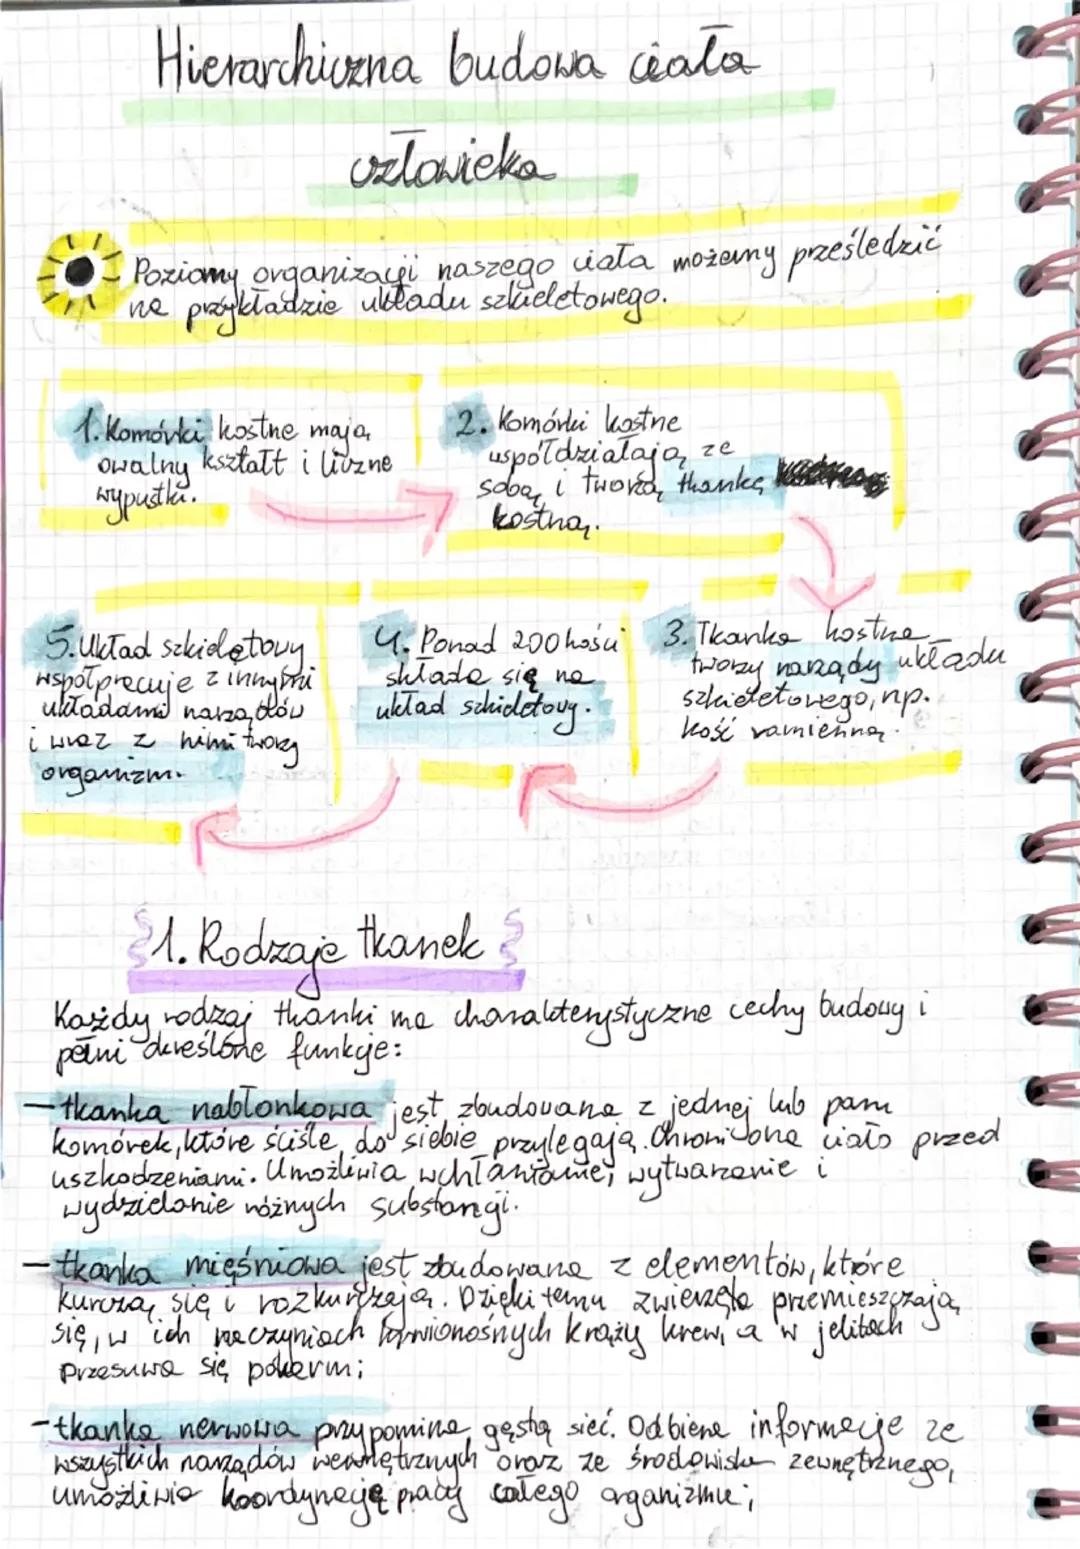 Hierarchiczna budowa ciała
człowieka
Poziomy organizacji naszego ciała możemy prześledzić
na przykładzie układu szkieletowego.
1. Komórki kostne mają
owalny kształt i liczne
wypustki.
2. Komórki kostne
współdziałają ze
sobą i tworzą tkankę
kostną.
3. Tkanka kostna
tworzy narządy układu
szkieletowego, np.
kość ramienną.
4. Ponad 200 kości
składa się na
układ szkieletowy.
5. Układ szkieletowy
współpracuje z innymi
układami narządów
i wraz z nimi tworzy
organizm.
1. Rodzaje tkanek
Każdy rodzaj tkanki ma charakterystyczne cechy budowy i
pełni określone funkcje:
- tkanka nabłonkowa jest zbudowana z jednej lub paru
komórek, które ściśle do siebie przylegają. Chroni ona ciało przed
uszkodzeniami. Umożliwia wchłanianie, wytwarzanie i
wydzielanie różnych substancji.
- tkanka mięśniowa jest zbudowana z elementów, które
kurczą się i rozkurczają. Dzięki temu zwierzęta przemieszczają
się, w ich naczyniach krwionośnych krąży krew, a w jelitach
przesuwa się pokarm;
- tkanka nerwowa przypomina gęstą sieć. Odbiera informacje ze
wszystkich narządów wewnętrznych oraz ze środowiska zewnętrznego,
umożliwia koordynację pracy całego organizmu;